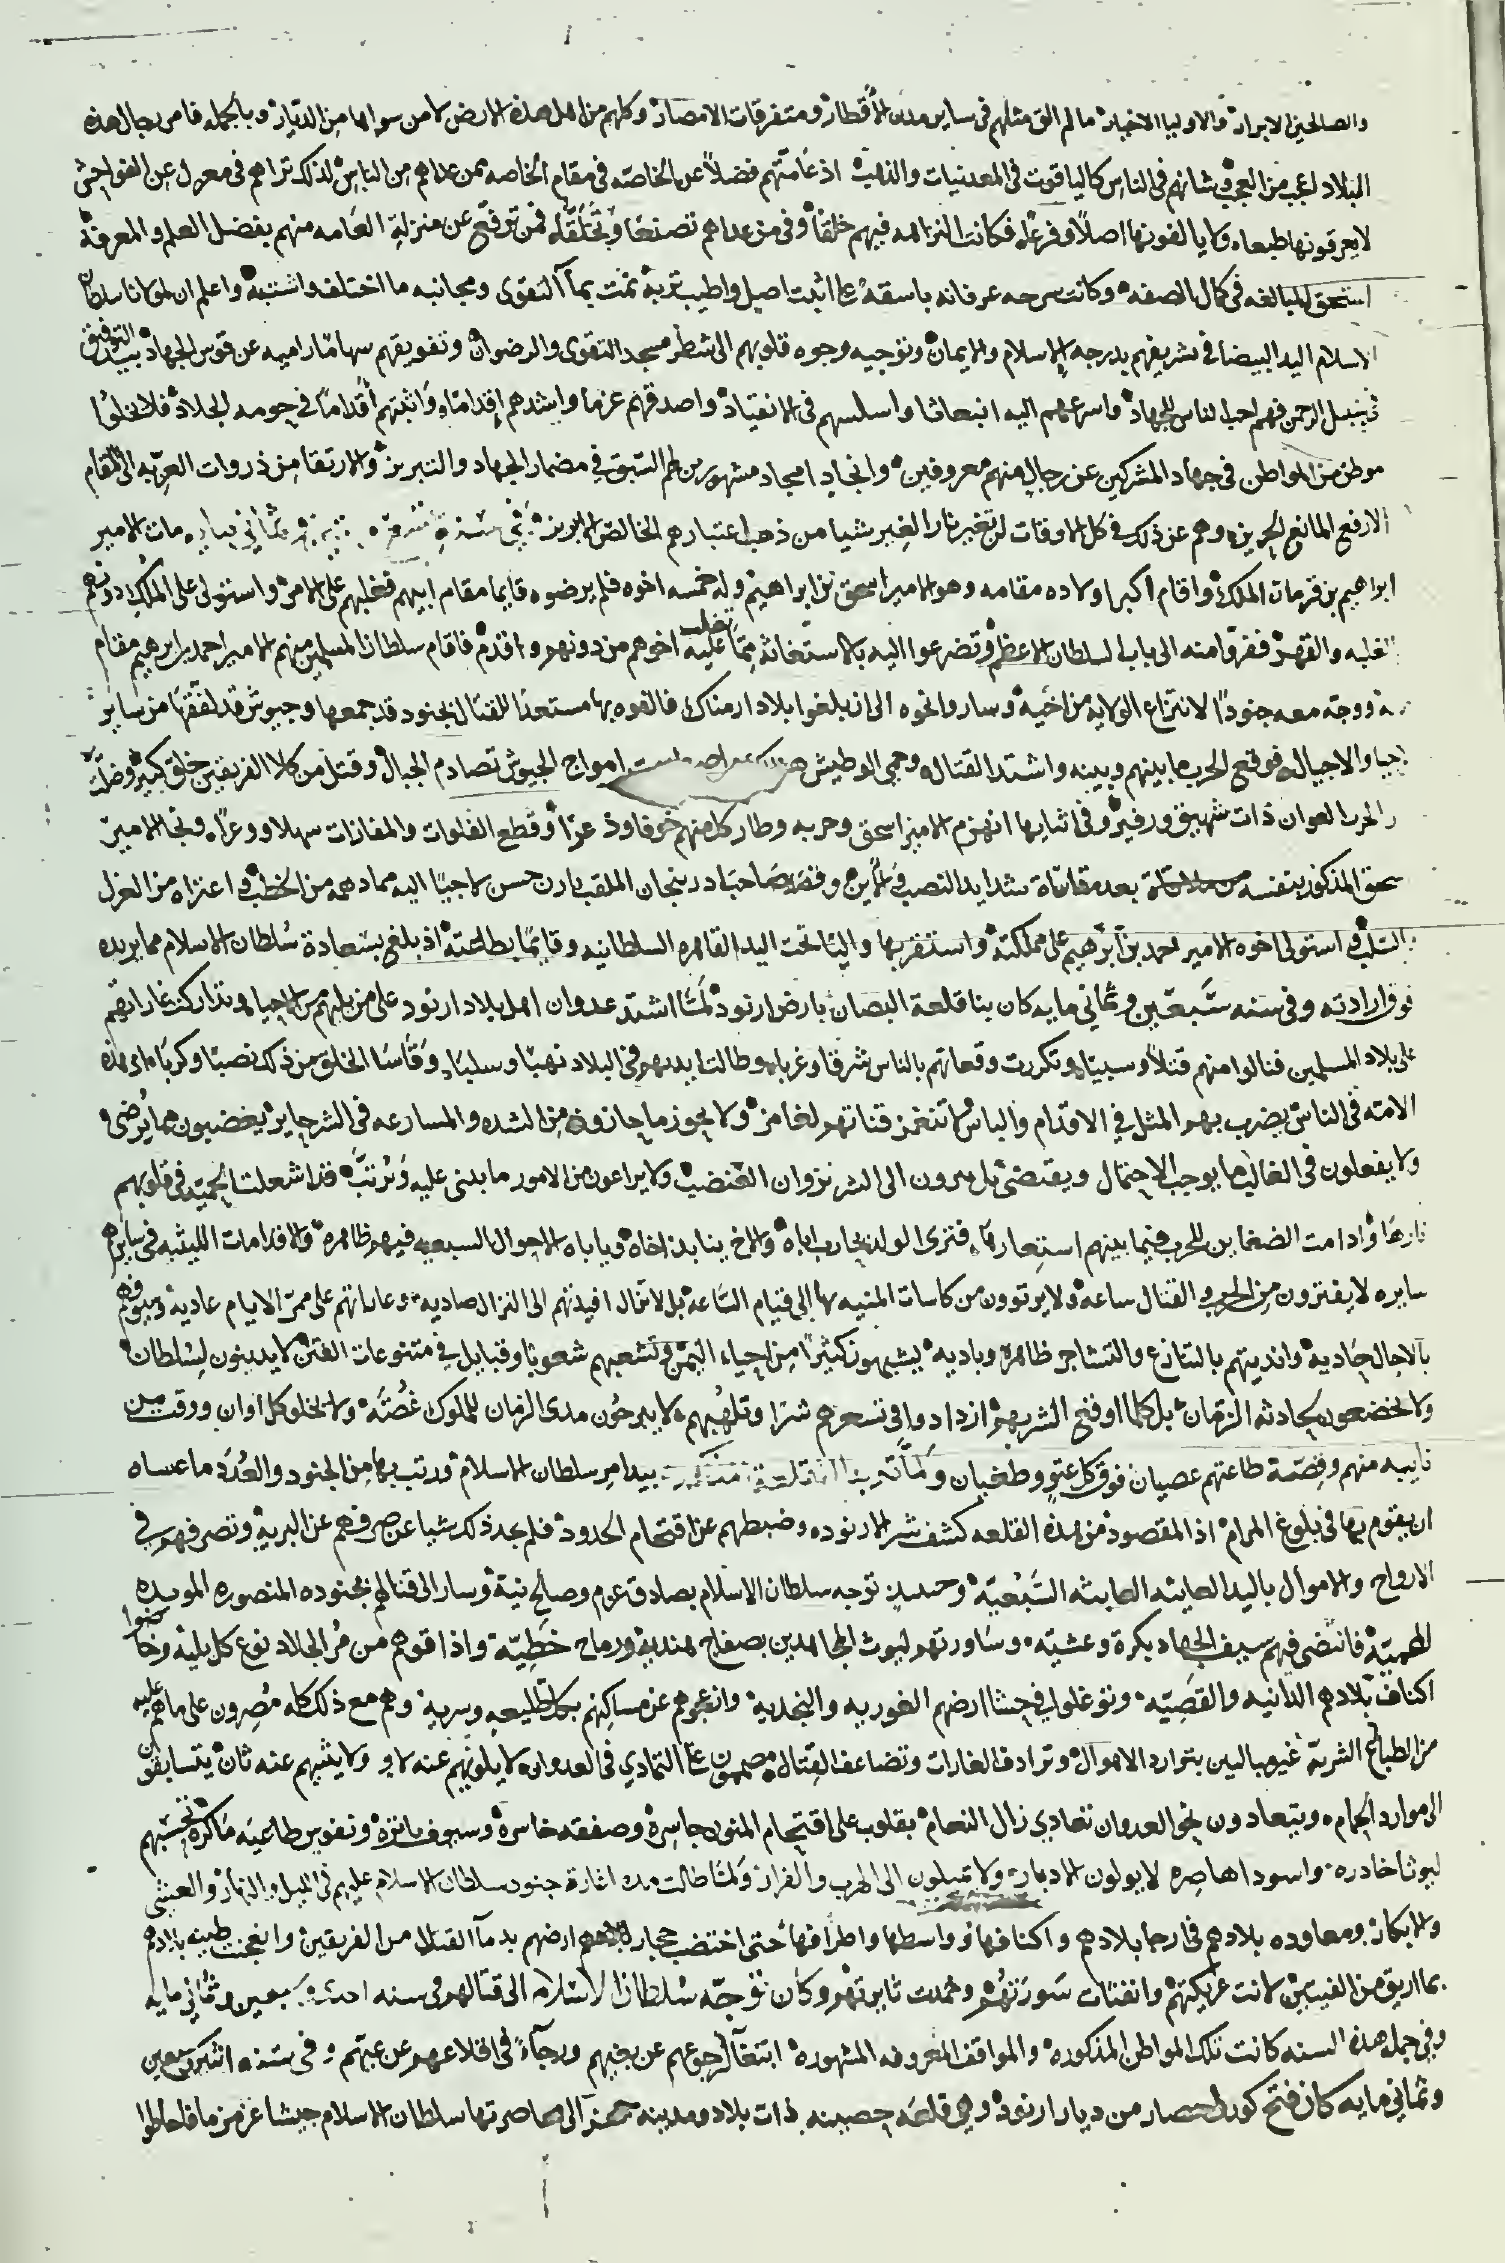 والصالحين الابرار والاوليا الاخيار ما لم الق مثلهم في ساير مدن الأقطار ومتفرقات الامصار وكلهم من اهل هذه الارض لا من سواها من الديار وبالجمله فامر رجال هذه
البلاد لعجب من العجب وشانهم في الناس كالياقوت في المعدنيات والذهب اذ عامتهم فضلاً عن الخاصه في مقام الخاصه ممن عداهم من الناس لذلك تراهم في معزل عن الفواحش
لا يعرفونها طبعا ولا يالفونها اصلاً وفرعاً فكانت النزاهه فيهم خلقاً وفي من عداهم تصنعاً وتخلقاً فمن ترفّع عن منزلة العامه منهم بفضل العلم والمعرفة
استحق المبالغه في كمال الصفه وكانت سرحه عرفانه باسقة على اثبت اصل واطيب تربة نمت بمآ التقوى ومجانبه ما اختلف واشتبه واعلم ان لمولانا سلطان
الاسلام اليد البيضا في تشريفهم بدرجه الاسلام والايمان وتوجيه وجوه قلوبهم الى شطر مسجد التقوى والرضوان وتفويقهم سهامًا راميه عن قوس الجهاد بيد التوفيق
في سبيل الرحمن فهم احب الناس للجهاد واسرعهم اليه انبعاثا واسلسهم في الانقياد واصدقهم عزما واشدهم اقداما واثبتهم أقداماً في حومه الجلاد فلا يخلوا
موطن من المواطن في جهاد المشركين عن رجال منهم معروفين وانجاد امجاد مشهورين لهم السبق في مضمار الجهاد والتبريز والارتقا من ذروات العزه الى المقام
الارفع المانع الحريز وهم عن ذلك في كل الاوقات لن تغير نار الغير شيا من ذهب اعتبارهم الخالص الابريز وفي سنة وثماني مايه مات الامير
ابراهيم بن قرمان الملك واقام اكبر اولاده مقامه وهو الامير اسحق بن ابراهيم وله خمسه اخوه فلم يرضوه قايما مقام ابيهم فغلبهم على الامر واستولى على الملك دونهم
بالغلبه والقهر ففروا منه الى باب السلطان الاعظم وتضرعوا اليه بالاستغاثه مما تغلب عليه اخوهم من دونهم واقدم فاقام سلطان المسلمين منهم الامير احمد بن ابرهيم مقام
ووجه معه جنوداً لانتزاع الولايه من اخيه وسار واخوه الى ان بلغوا بلاد ارمناك فالفوه بها مستعدا للقتال بجنود قد جمعها وجيوش قد لفقها من ساير
والاجيال فوقع الحرب ما بينهم وبينه واشتد القتال وحمي الوطيس امواج الجيوش تصادم الجبال وقتل من كلا الفريقين خلق كثير وظلت
الحرب العوان ذات شهيق وزفير وفي اثنايها انهزم الامير اسحق وحزبه وطار كل منهم خوفا وذعراً وقطع الفلوات والمفازات سهلا ووعراً ونجا الامير
اسحق المذكور بنفسه بعد مقاساة شدايد النصب والأين وقصد صاحب اذربيجان الملقب بازن حسن لاجيًا اليه مما دهمه من الخطب واعتراه من العزل
والسلب واستولى اخوه الامير احمد بن ابرهيم على مملكته واستقر بها واليًا تحت اليد القاهره السلطانيه وقايمًا بطاعته اذ بلغ بسعادة سلطان الاسلام مما يريده
فوق ارادته وفي سنه سبعين وثماني مايه كان بنا قلعة البصان بارض ارنود لمّا اشتد عدوان اهل بلاد ارنود على من يليهم من الاحيا وتداركت غاراتهم
على بلاد المسلمين فنالوا منهم قتلاً وسبيًا وتكررت وقعاتهم بالناس شرقا وغربا وطالت ايديهم في البلاد نهبًا وسلبًا وقاسا الخلق من ذلك نصبًا وكربًا اذ هذه
الامه في الناس يضرب بهم المثل في الاقدام والباس لا تنغمز قناتهم لغامز ولا يجوز ما جازوه من الشده والمسارعه في الشر جايز يغضبون مما يُرضي و
ولا يفعلون في الغالب ما يوجب الاحتمال ويقتضي بل يبدرون الى الشر نزوان الغضب ولا يراعون من الامور ما يبنى عليه ويُرتب قد اشعلت الحميه في قلوبهم
نارها وادامت الضغاين للحرب فيما بينهم استعارها فترى الولد يحارب اباه والاخ ينابذ اخاه وياباه الاحوال السبعيه فيهم ظاهره والاقدامات الليثيه في سايرهم
سايره لا يفترون من الحرب والقتال ساعه ولا يرتوون من كاسات المنيه بها الى قيام الساعه بل لا تزال افيدتهم الى النزال صاديه وغاراتهم على ممر الايام عاديه وسيوفهم
بالاجال حاديه وانديتهم بالتنازع والتشاجر ظاهرة وباديه يشبهون كثيراً من احياء اليمن في تشعبهم شعوبًا وقبايل في متنوعات الفتن لا يدينون لسلطان
ولا يخضعون لحادثه الزمان بل كلما اوقع الشر بهم ازدادوا في تسعرهم شرًا وتلهبهم لا يبرحون مدى الزمان للملوك غصّة ولا يخلو كل اوان ووقت من
نايبه منهم وقصّه طاعتهم عصيان فوق كل عتو وطغيان ولمّا بيد امر سلطان الاسلام ورتب بها من الجنود والعُدد ما عساه
ان يقوم بها في بلوغ المرام اذ المقصود من هذه القلعه كشف شر الارنوده وضبطهم عن اقتحام الحدود فلم يجد ذلك شيا عن صرفهم عن البرية وتصرفهم في
الارواح والاموال باليد العابثه السبعيّة وحينيذ توجه سلطان الاسلام بصادق عزم وصالح نية وسار الى قتالهم بجنوده المنصوره المويده
فانتضى فيهم سيف الجهاد بكرة وعشيّه وساورتهم ليوث المجاهدين بصفاح هنديه ورماح خطّيّة واذاقوهم من مُر الجلاد نوع كل بليه وخاضوا
اكناف بلادهم الدانيه والقصيّه وتوغلوا في حشا ارضهم الغوريه والنجديه وازعجوهم عن مساكنهم بكل طليعه وسريه وهم مع ذلك كله مُصرون على ما هم عليه
من الطباع الشريه غير مبالين بتوارد الاهوال وترادف الغارات وتضاعف القتال مصممون على التمادي في العدوان لا يلويهم عنه لاوٍ ولا يثنيهم عنه ثان يتسابقون
الى موارد الحمام ويتعادون نحو العدوان تعادي رال النعام بقلوب على اقتحام المنون جاسرة وصفقه خاسرة وسيوف باترة ونفوس طاغيه ماكرة تحسبهم
ليوثا خادره واسودا هاصره لا يولون الادبار ولا يميلون الى الهرب والفرار ولمّا طالت مده اغارة جنود سلطان الاسلام عليهم في الليل والنهار والعشي
والابكار ومعاوده بلادهم في ارجا بلادهم واكنافها واواسطها واطرافها حتى اختضب حجار ارضهم بدمآ القتلا من الفريقين وانعجنت طينه بلادهم
بما اريق من الفيتين لانت عريكتهم وانفثات سَورتهم وخمدت ثايرتهم وكان توجّه سُلطان الاسلام الى قتالهم في سنه احدى وسبعين وثماني مايه
وفي جمله هذه السنه كانت تلك المواطن المذكوره والمواقف المعروفه المشهوره ابتغآ لرجوعهم عن بغيهم ورجآءً في اقلاعهم عن غيّهم وفي سنه اثنتين وسبعين
وثماني مايه كان فتح كورك حصار من ديار ارنود وهي قلعه حصينه ذات بلاد ومدينه جهز الى محاصرتها سلطان الاسلام جيشا عرمرما فاحاطوا